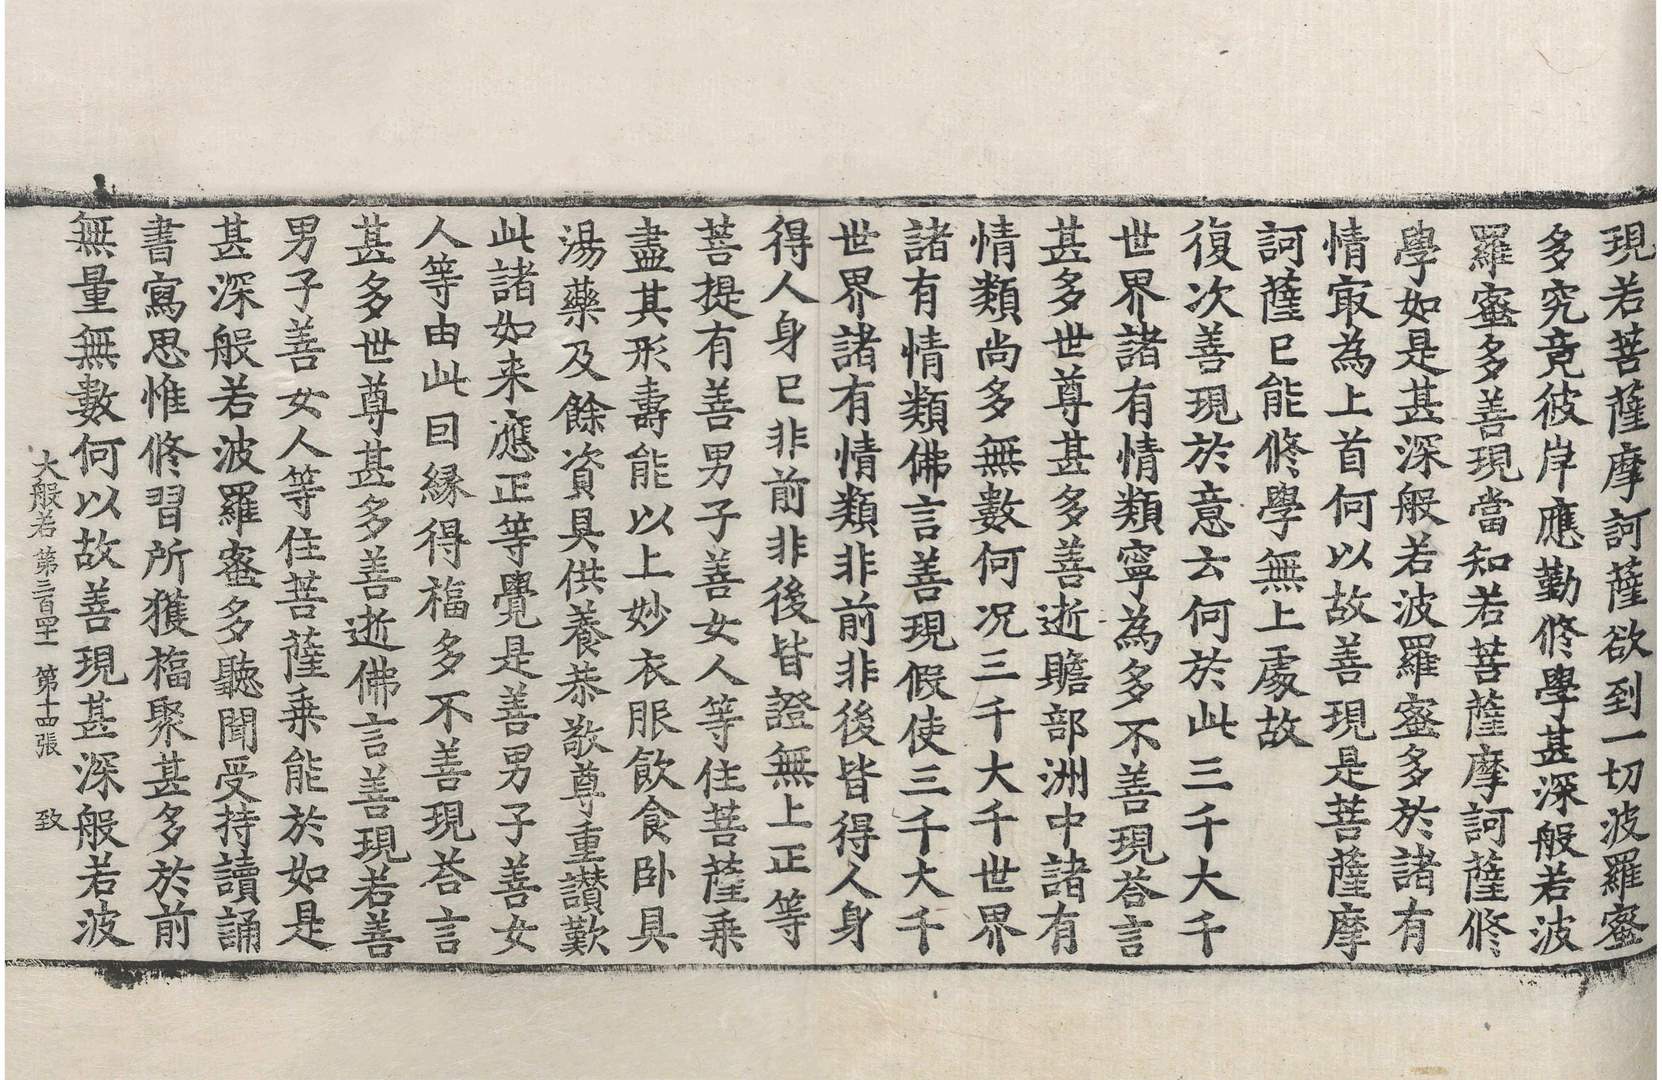 現若菩薩摩訶薩欲到一切波羅蜜
多究竟彼岸應勤修學甚深般若波
羅蜜多善現當知若菩薩摩訶薩修
學如是甚深般若波羅蜜多於諸有
情㝡為上首何以故善現是菩薩摩
訶薩已能修學無上處故
復次善現於意云何於此三千大千
世界諸有情類寧為多不善現荅言
甚多世尊甚多善逝贍部洲中諸有
情類尚多無數何况三千大千世界
諸有情類佛言善現假使三千大千
世界諸有情類非前非後皆得人身
得人身已非前非後皆證無上正等
菩提有善男子善女人等住菩薩乗
盡其形壽能以上妙衣服飲食卧具
湯藥及餘資具供養恭敬尊重讃歎
此諸如来應正等覺是善男子善女
人等由此因縁得福多不善現荅言
甚多世尊甚多善逝佛言善現若善
男子善女人等住菩薩乗能於如是
甚深般若波羅蜜多聽聞受持讀誦
書寫思惟修習所獲福聚甚多於前
無量無數何以故善現甚深般若波
大般若第三百四十一 第十四張 致